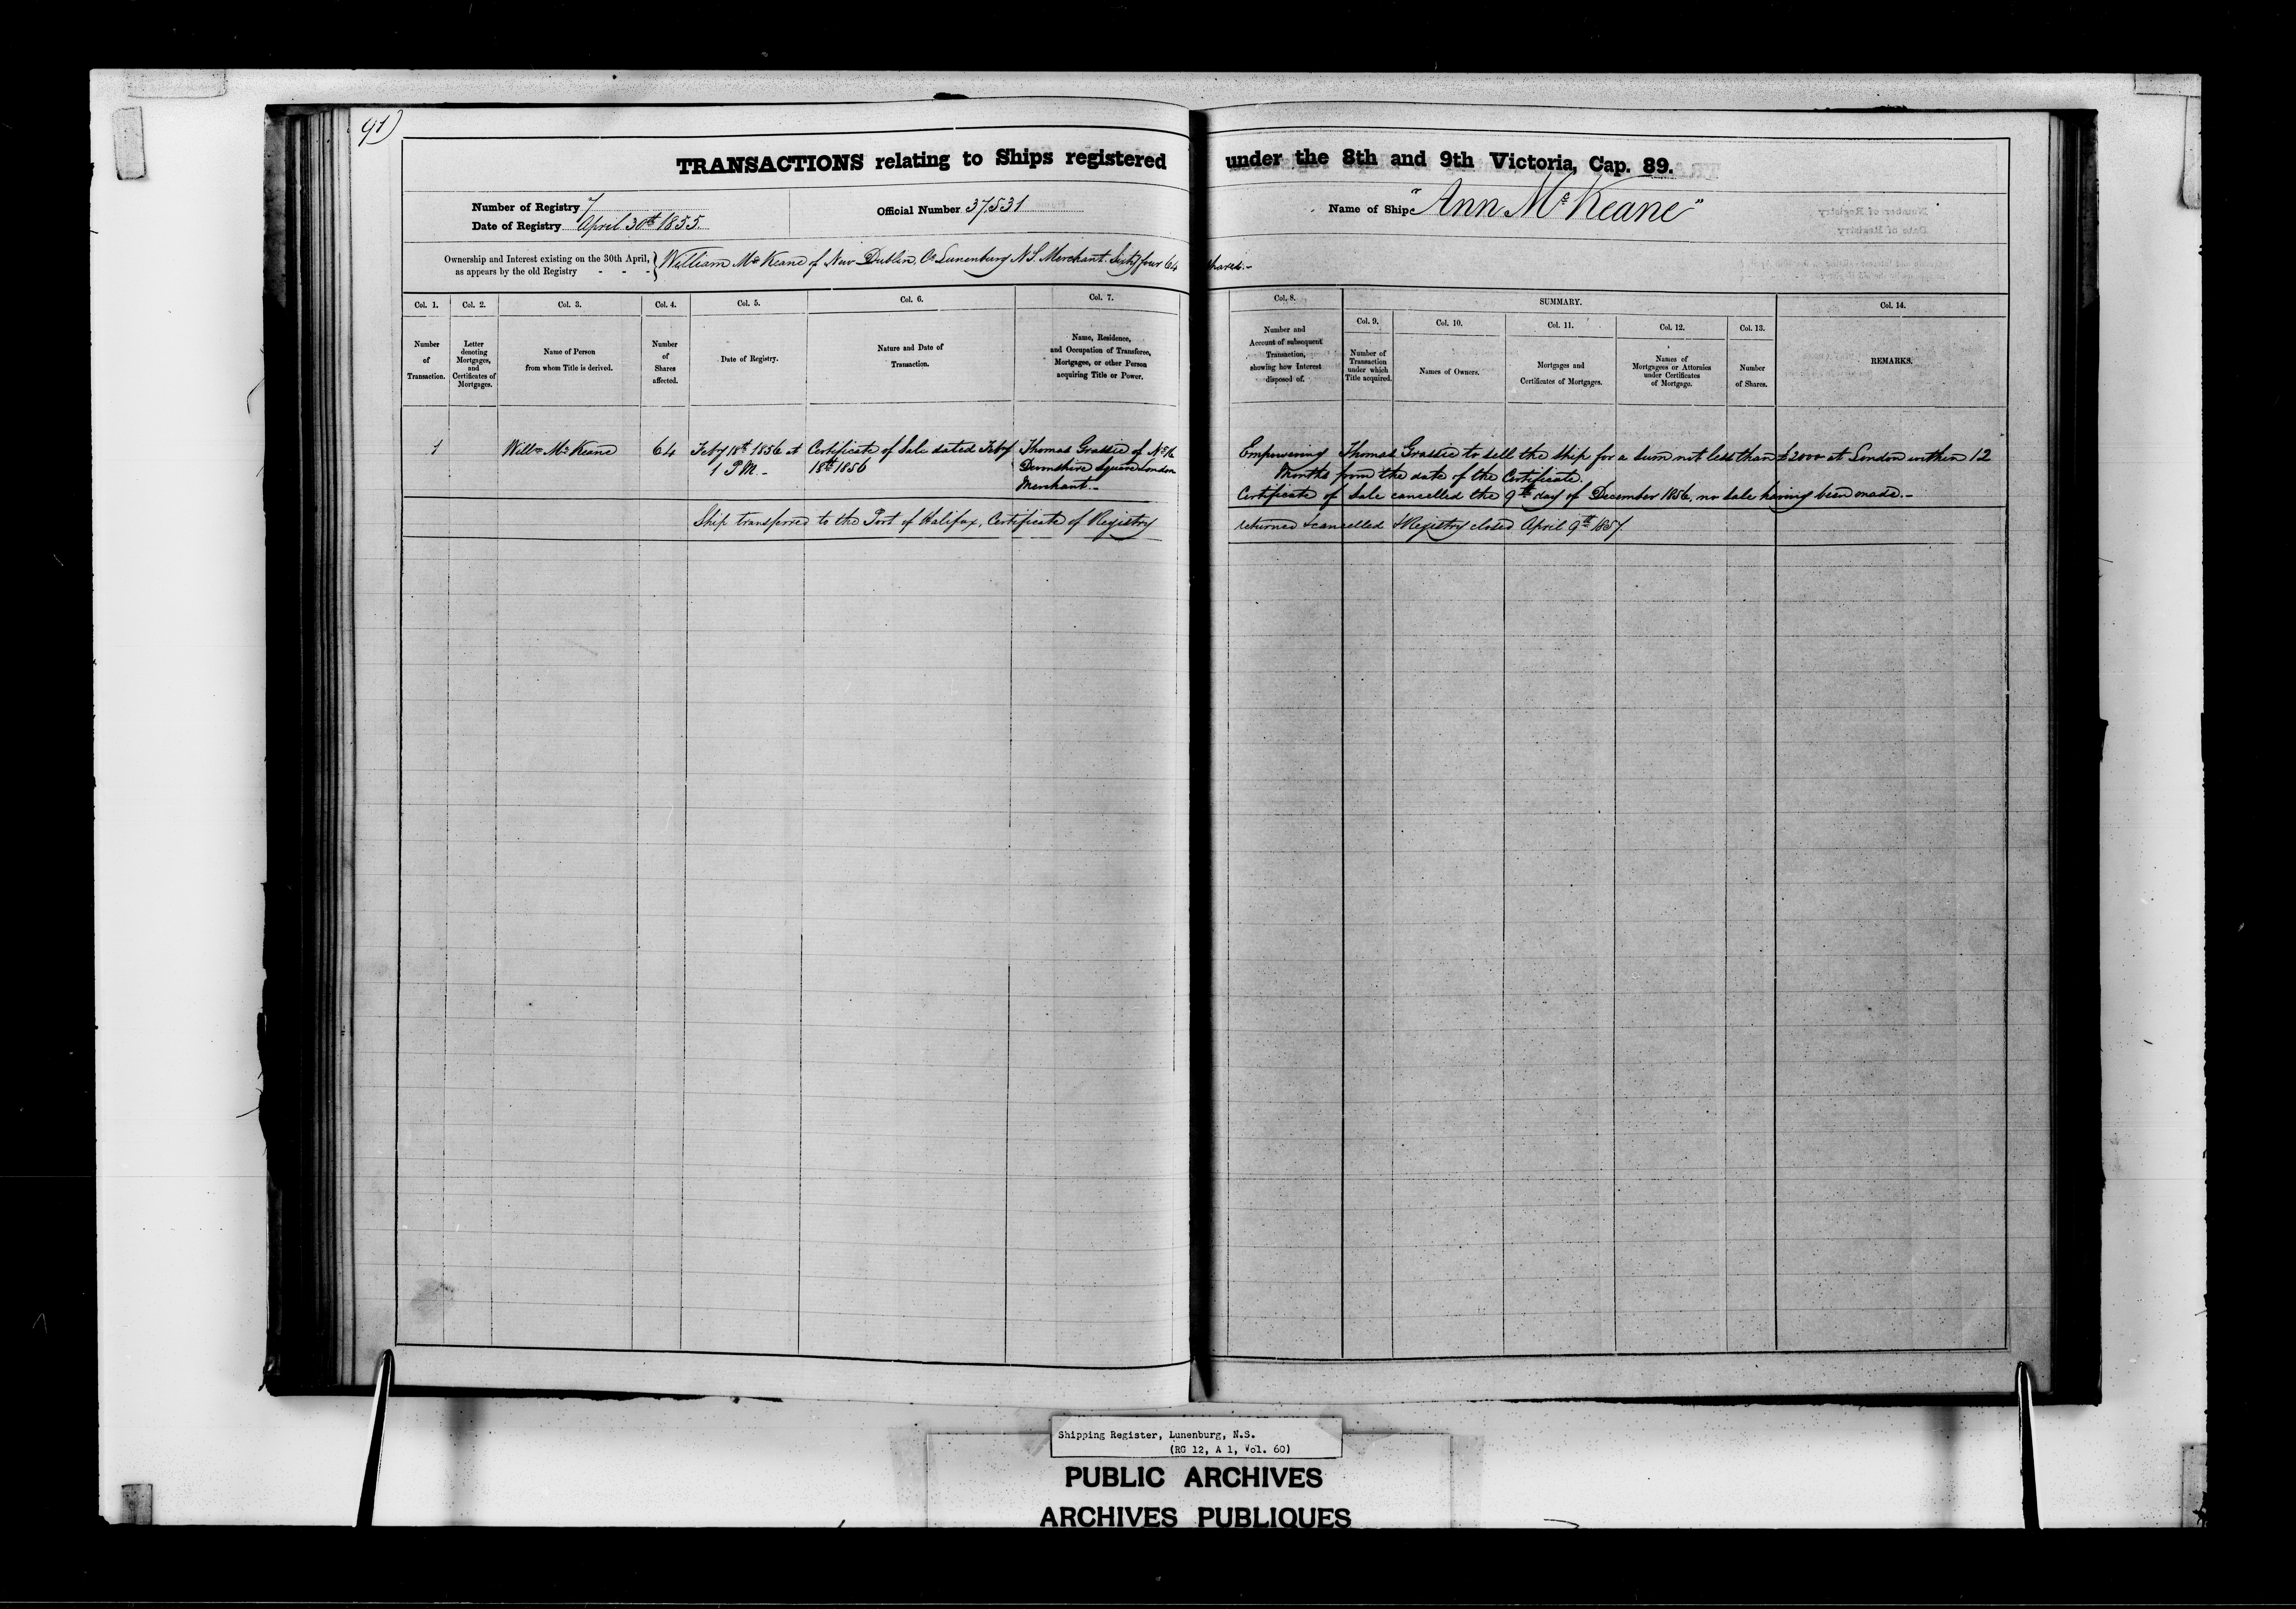 91)
TRANSACTIONS relating to Ships registered under the 8th and 9th Victoria, Cap. 89.
Number of Registry 7
Date of Registry April 30th 1855.
Official Number 37531
Name of Ship "Ann McKeane"
Ownership and Interest existing on the 30th April, as appears by the old Registry - - - William McKeane of New Dublin, Co Lunenburg N.S. Merchant. Sixty four 64 shares.-
Col. 1. Col. 2. Col. 3. Col. 4. Col. 5. Col. 6. Col. 7. Col. 8. SUMMARY. Col. 14.
Col. 9. Col. 10. Col. 11. Col. 12. Col. 13.
Number of Transaction.
Letter denoting Mortgages, and Certificates of Mortgages.
Name of Person from whom Title is derived.
Number of Shares affected.
Date of Registry.
Nature and Date of Transaction.
Name, Residence, and Occupation of Transferee, Mortgagee, or other Person acquiring Title or Power.
Number and Account of subsequent Transaction, showing how Interest disposed of.
Number of Transaction under which Title acquired.
Names of Owners.
Mortgages and Certificates of Mortgages.
Names of Mortgagees or Attornies under Certificates of Mortgage.
Number of Shares.
REMARKS.
1
Willm McKeane
64
Feby 18th 1856 at
1 P.M. -
Certificate of Sale dated Feby
18th 1856
Thomas Grassie of No
Devonshire Square London
Merchant.-
Empowering Thomas Grassie to sell the ship for a sum not less than £2000 at London within 12
Months from the date of the Certificate.
Certificate of Sale cancelled the 9th day of December 1856, no sale having been made.-
Ship transferred to the Port of Halifax, Certificate of Registry returned & cancelled & Registry closed April 9th 1857.
Shipping Register, Lunenburg, N.S.
(RG 12, A 1, Vol. 60)
PUBLIC ARCHIVES
ARCHIVES PUBLIQUES